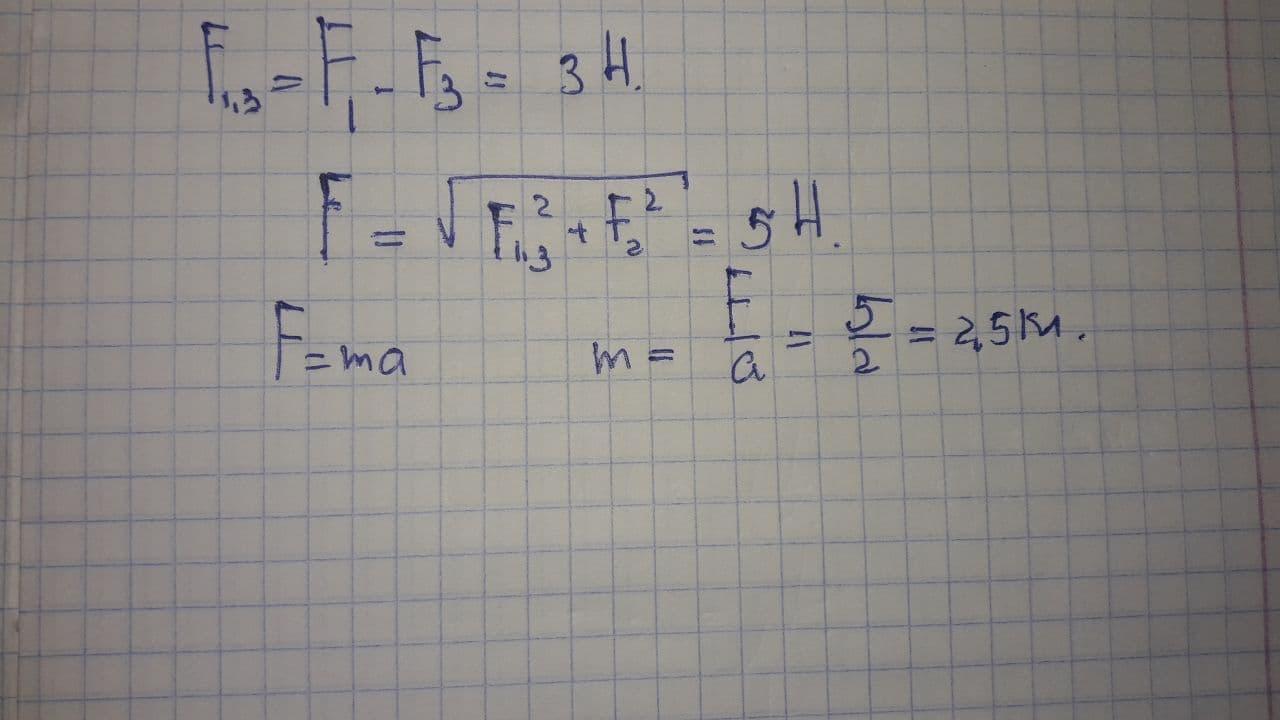 F₁,₃ = F₁ - F₃ = 3 Н.
F = √(F₁,₃² + F₂²) = 5 Н.
F = ma m = F/a = 5/2 = 2,5 кг.